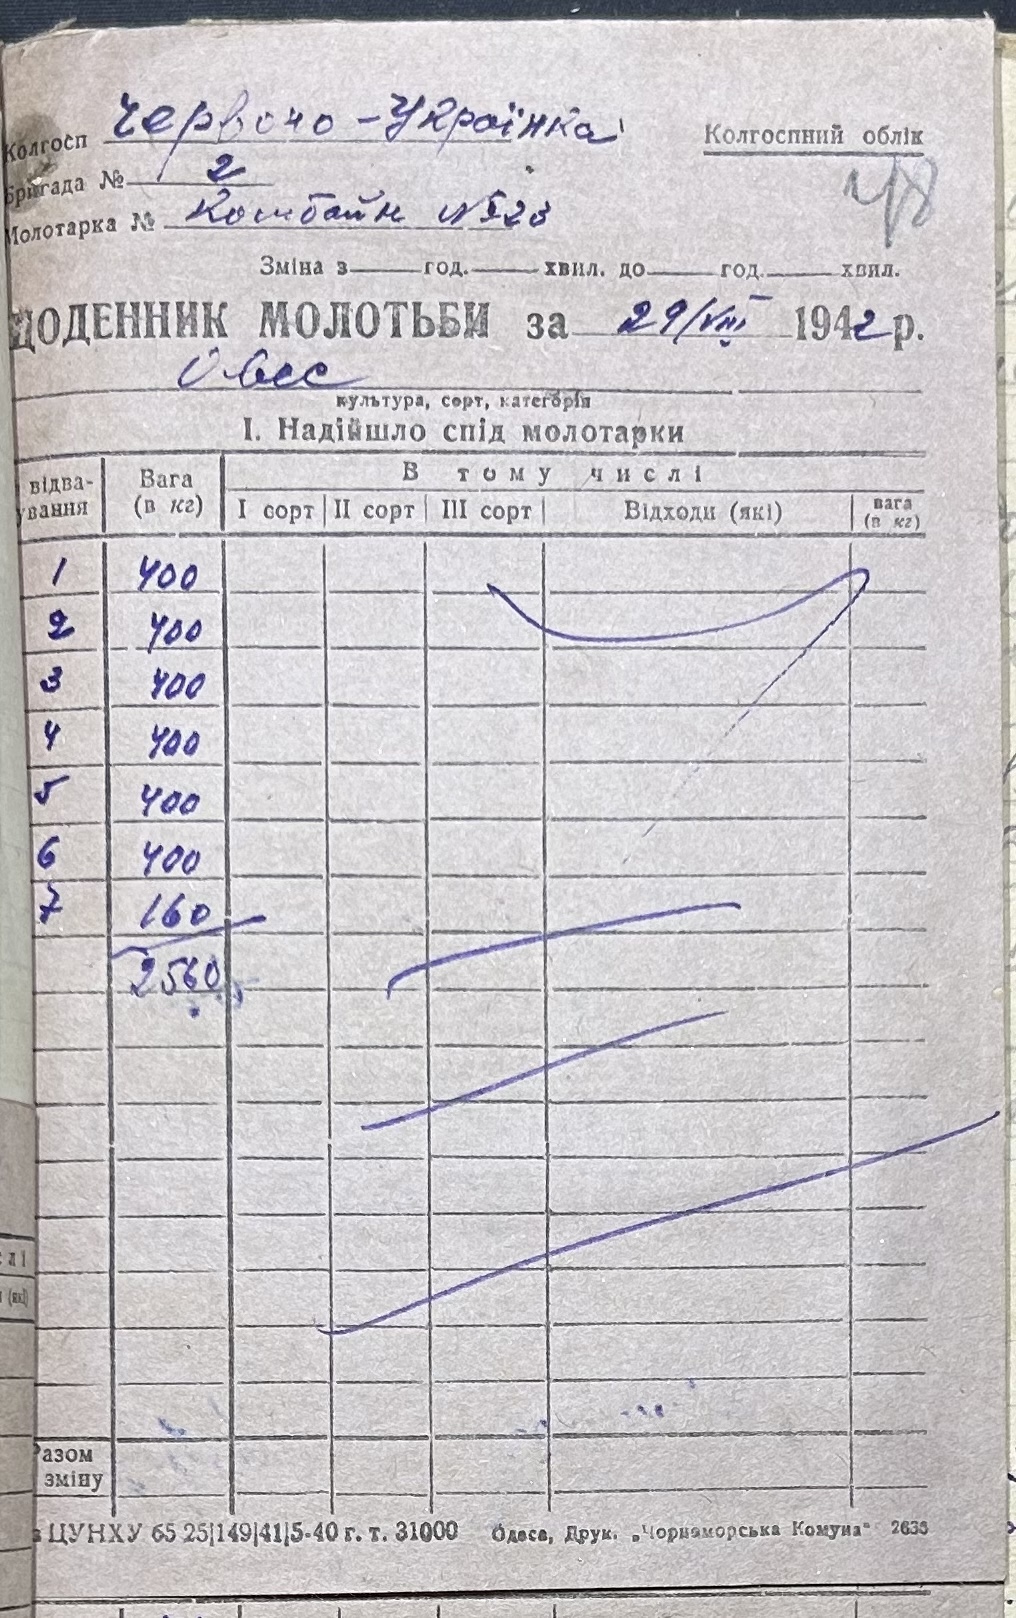 Колгосп Червоно-Українка Колгоспний облік
Бригада № 2 48
Молотарка № Комбайн №523
Зміна з год. хвил. до год. хвил.
ЩОДЕННИК МОЛОТЬБИ за 29/VIII 1942 р.
Овес
культура, сорт, категорія
І. Надійшло спід молотарки
відва- Вага В тому числі
ування (в кг) І сорт ІІ сорт ІІІ сорт Відходи (які) вага (в кг)
1 400
2 400
3 400
4 400
5 400
6 400
7 160
2560
Разом
зміну
ЦУНХУ 65 25|149|41|5-40 г. т. 31000 Одеса, Друк. „Чорноморська Комуна" 2636